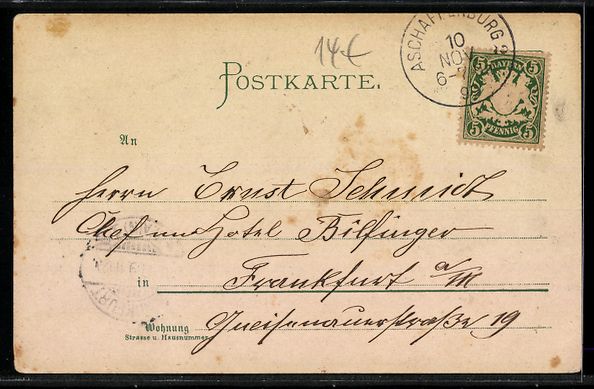 14€
ASCHAFFENBURG 2
10
NOV
6-7
BAYERN
5 5
5 5
PFENNIG
POSTKARTE.
An
Herrn Ernst Schmidt
Chef vom Hotel Bilfinger
in Frankfurt a/M
Wohnung
Strasse u. Hausnummer
Gneisenauerstraße 19